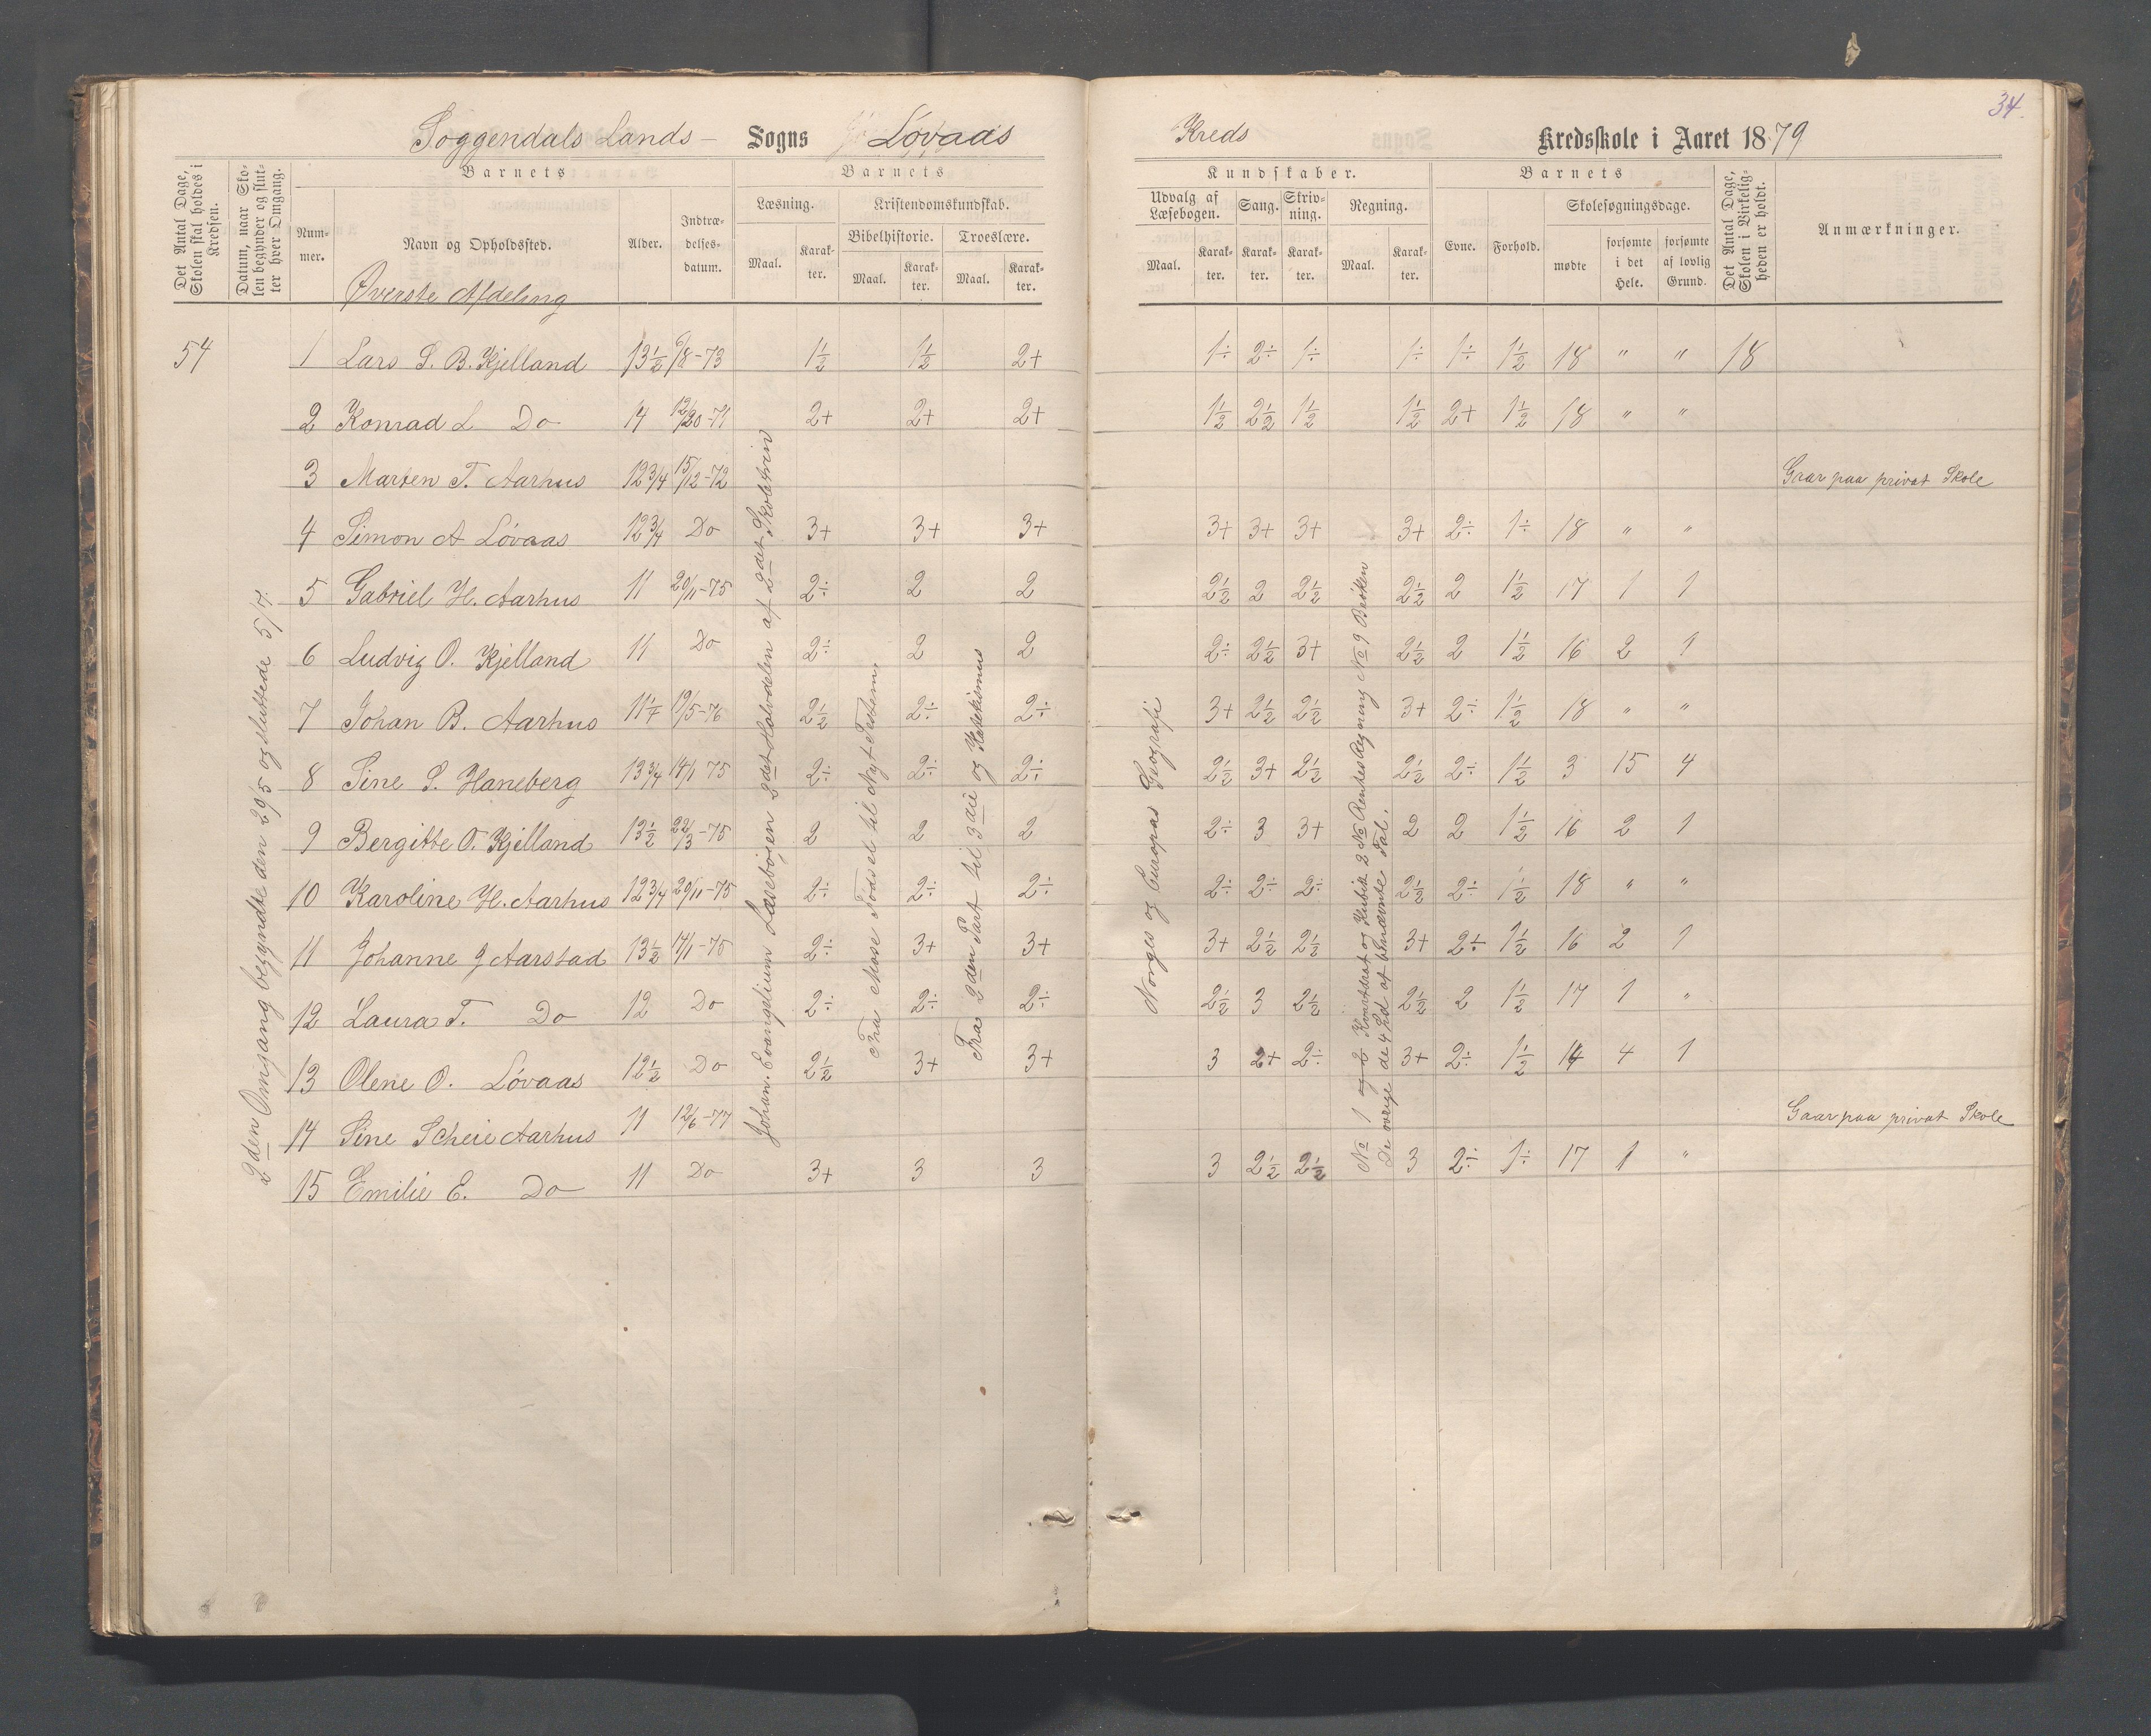 34.
Soggendals Lands- Sogns Lovaas Kreds Kredsskole i Aaret 1879
Det Antal Dage, Skolen skal holdes i Kredsen.
Datum, naar Skolen begynder og slutter hver Omgang.
Barnets
Nummer.
Navn og Opholdssted.
Alder.
Indtrædelsesdatum.
Barnets
Læsning.
Maal.
Karakter.
Kristendomskundskab.
Bibelhistorie.
Maal.
Karakter.
Troeslære.
Maal.
Karakter.
Kundskaber.
Udvalg af Læsebogen.
Maal.
Karakter.
Sang.
Karakter.
Skrivning.
Karakter.
Regning.
Maal.
Karakter.
Barnets
Evne.
Forhold.
Skolesøgningsdage.
mødte
forsømte i det Hele.
forsømte af lovlig Grund.
Det Antal Dage, Skolen i Virkeligheden er holdt.
Anmærkninger.
Øverste Afdeling
54 1 Lars S. B. Kjelland 13½ 6/8-73 1½ 1½ 2+ 1÷ 2÷ 1÷ 1÷ 1÷ 1½ 18 " " 18
2 Konrad L Do 14 12/20-71 2+ 2+ 2+ 1½ 2½ 1½ 1½ 2+ 1½ 18 " "
3 Marten T. Aarhus 12¾ 15/12-72 Gaar paa privat Skole
4 Simon A Lóvaas 12¾ Do 3+ 3+ 3+ 3+ 3+ 3+ 3+ 2÷ 1÷ 18 " "
5 Gabriel H. Aarhus 11 20/11-75 2÷ 2 2 2½ 2 2½ 2½ 2 1½ 17 1 1
6 Ludvig O. Kjelland 11 Do 2÷ 2 2 2÷ 2½ 3+ 2½ 2 1½ 16 2 1
7 Johan B. Aarhus 11¼ 19/5-76 2½ 2÷ 2÷ 3+ 2½ 2½ 3+ 2÷ 1½ 18 " "
8 Sine S. Haneberg 13¾ 14/1 75 2÷ 2÷ 2÷ 2½ 3+ 2½ 2½ 2÷ 1½ 3 15 4
9 Bergitte O. Kjelland 13½ 22/3-75 2 2 2 2÷ 3 3+ 2 2 1½ 16 2 1
10 Karoline H. Aarhus 12¾ 20/11-75 2÷ 2÷ 2÷ 2÷ 2÷ 2÷ 2½ 2÷ 1½ 18 " "
11 Johanne J Aarstad 13½ 14/1-75 2÷ 3+ 3+ 3+ 2½ 2½ 3+ 2÷ 1½ 16 2 1
12 Laura T. Do 12 Do 2÷ 2÷ 2÷ 2½ 3 2½ 2½ 2 1½ 17 1 "
13 Olene O. Lóvaas 12½ Do 2½ 3+ 3+ 3 2+ 2÷ 3+ 2÷ 1½ 14 4 1
14 Sine Scheie Aarhus 11 12/6-77 Gaar paa privat Skole
15 Emilie E. Do 11 Do 3+ 3 3 3 2½ 2½ 3 2÷ 1÷ 17 1 "
2den Omgang begyndte den 29/5 og sluttede 5/7.
Johan. Evangelium Læsebogen 2det Halvdelen af 2det Skoletrin
Fra Mose Fødsel til Nyt Testam.
Fra 2den Part til 3die og Katekismus
Norges og Europas Geografi
No 1 og 2 Kvardrat og Kubik 2 No Rentes Regning No 9 Brøken
De øvrige de 4 Rd at benævnte Tal.